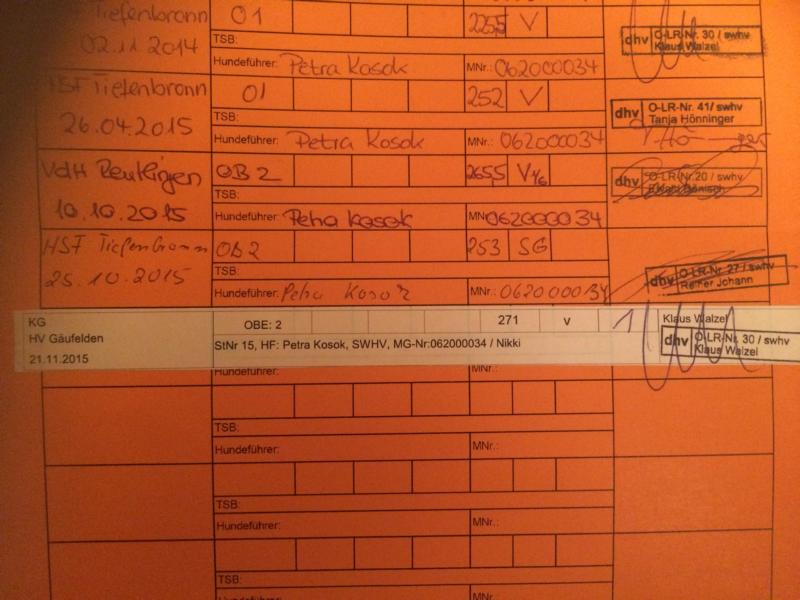 Tiefenbronn
02.11.2014
01
225,5 V
TSB:
Hundeführer: Petra Kosok MNr.: 062000034
dhv O-LR-Nr. 30 / swhv
Klaus Walzel
HSF Tiefenbronn
26.04.2015
01
252 V
TSB:
Hundeführer: Petra Kosok MNr.: 062000034
dhv O-LR-Nr. 41/ swhv
Tanja Hönninger
VdH Reutlingen
10.10.2015
OB 2
265,5
TSB:
Hundeführer: Petra Kosok MN 062000034
dhv O-LR-Nr.20 / swhv
HSF Tiefenbronn
25.10.2015
OB 2
253 SG
TSB:
Hundeführer: Petra Kosok MNr.: 062000034
dhv O-LR-Nr. 27 / swhv
Reiner Johann
KG
HV Gäufelden
21.11.2015
OBE: 2 271 v 1
StNr 15, HF: Petra Kosok, SWHV, MG-Nr:062000034 / Nikki
Klaus Walzel
dhv O-LR-Nr. 30 / swhv
Klaus Walzel
Hundeführer: MNr.:
TSB:
Hundeführer: MNr.:
TSB:
Hundeführer: MNr.:
TSB:
Hundeführer: MNr.: